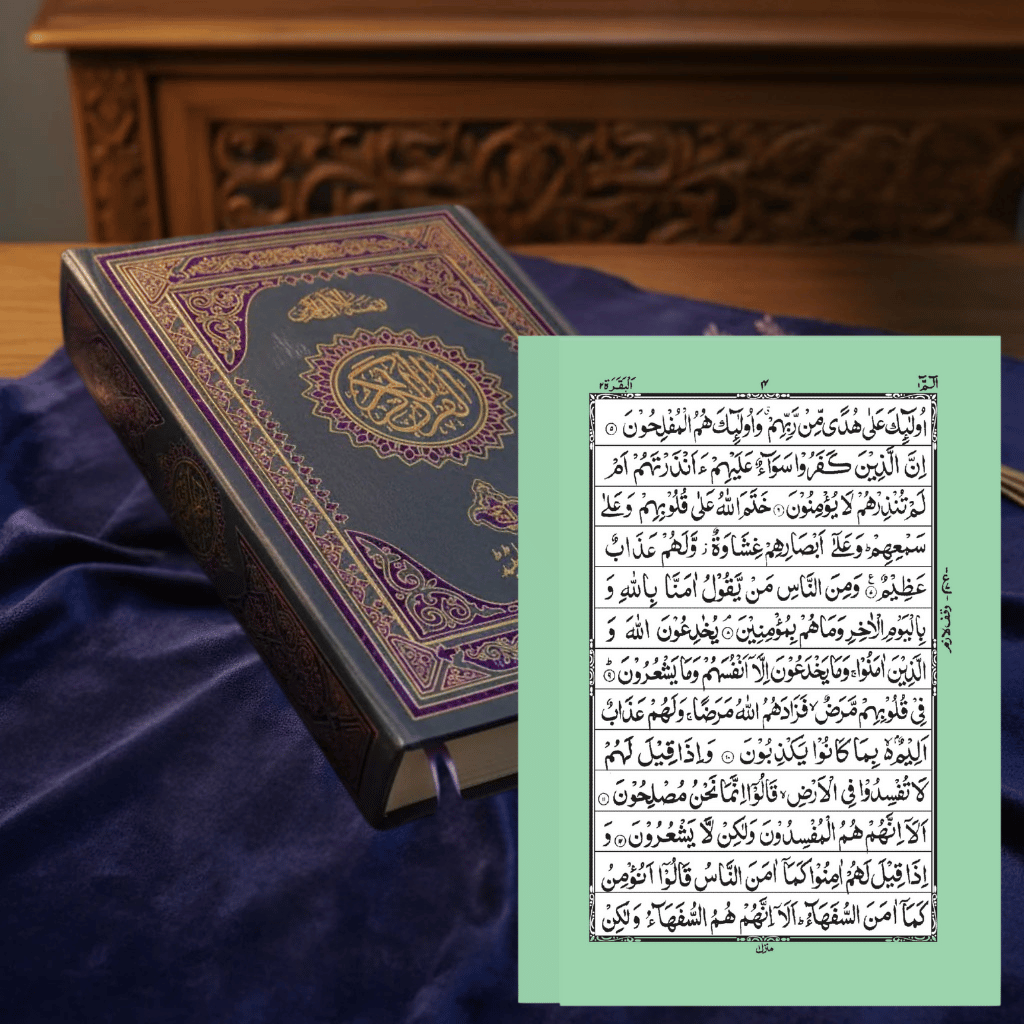 القرآن الكريم
الٓمّٓ ۱
۴
اَلْبَقَرَة ۲
اُولٰٓئِكَ عَلٰى هُدًى مِّنْ رَّبِّهِمْ ۗ وَاُولٰٓئِكَ هُمُ الْمُفْلِحُوْنَ ۵
اِنَّ الَّذِيْنَ كَفَرُوْا سَوَآءٌ عَلَيْهِمْ ءَاَنْذَرْتَهُمْ اَمْ
لَمْ تُنْذِرْهُمْ لَا يُؤْمِنُوْنَ ۶ خَتَمَ اللّٰهُ عَلٰى قُلُوْبِهِمْ وَعَلٰى
سَمْعِهِمْ ؕ وَعَلٰٓى اَبْصَارِهِمْ غِشَاوَةٌ ز وَّلَهُمْ عَذَابٌ
عَظِيْمٌ ۷ وَمِنَ النَّاسِ مَنْ يَّقُوْلُ اٰمَنَّا بِاللّٰهِ وَ
بِالْيَوْمِ الْاٰخِرِ وَمَا هُمْ بِمُؤْمِنِيْنَ ۸ يُخٰدِعُوْنَ اللّٰهَ وَ
الَّذِيْنَ اٰمَنُوْا ۚ وَمَا يَخْدَعُوْنَ اِلَّاۤ اَنْفُسَهُمْ وَمَا يَشْعُرُوْنَ ؕ ۹
فِيْ قُلُوْبِهِمْ مَّرَضٌ ۙ فَزَادَهُمُ اللّٰهُ مَرَضًا ۚ وَلَهُمْ عَذَابٌ
اَلِيْمٌ ۢ ۙ بِمَا كَانُوْا يَكْذِبُوْنَ ۱۰ وَاِذَا قِيْلَ لَهُمْ
لَا تُفْسِدُوْا فِي الْاَرْضِ ۙ قَالُوْٓا اِنَّمَا نَحْنُ مُصْلِحُوْنَ ۱۱
اَلَاۤ اِنَّهُمْ هُمُ الْمُفْسِدُوْنَ وَلٰكِنْ لَّا يَشْعُرُوْنَ ۱۲ وَ
اِذَا قِيْلَ لَهُمْ اٰمِنُوْا كَمَاۤ اٰمَنَ النَّاسُ قَالُوْٓا اَنُؤْمِنُ
كَمَاۤ اٰمَنَ السُّفَهَآءُ ؕ اَلَاۤ اِنَّهُمْ هُمُ السُّفَهَآءُ وَلٰكِنْ
وقف لازم
منزل